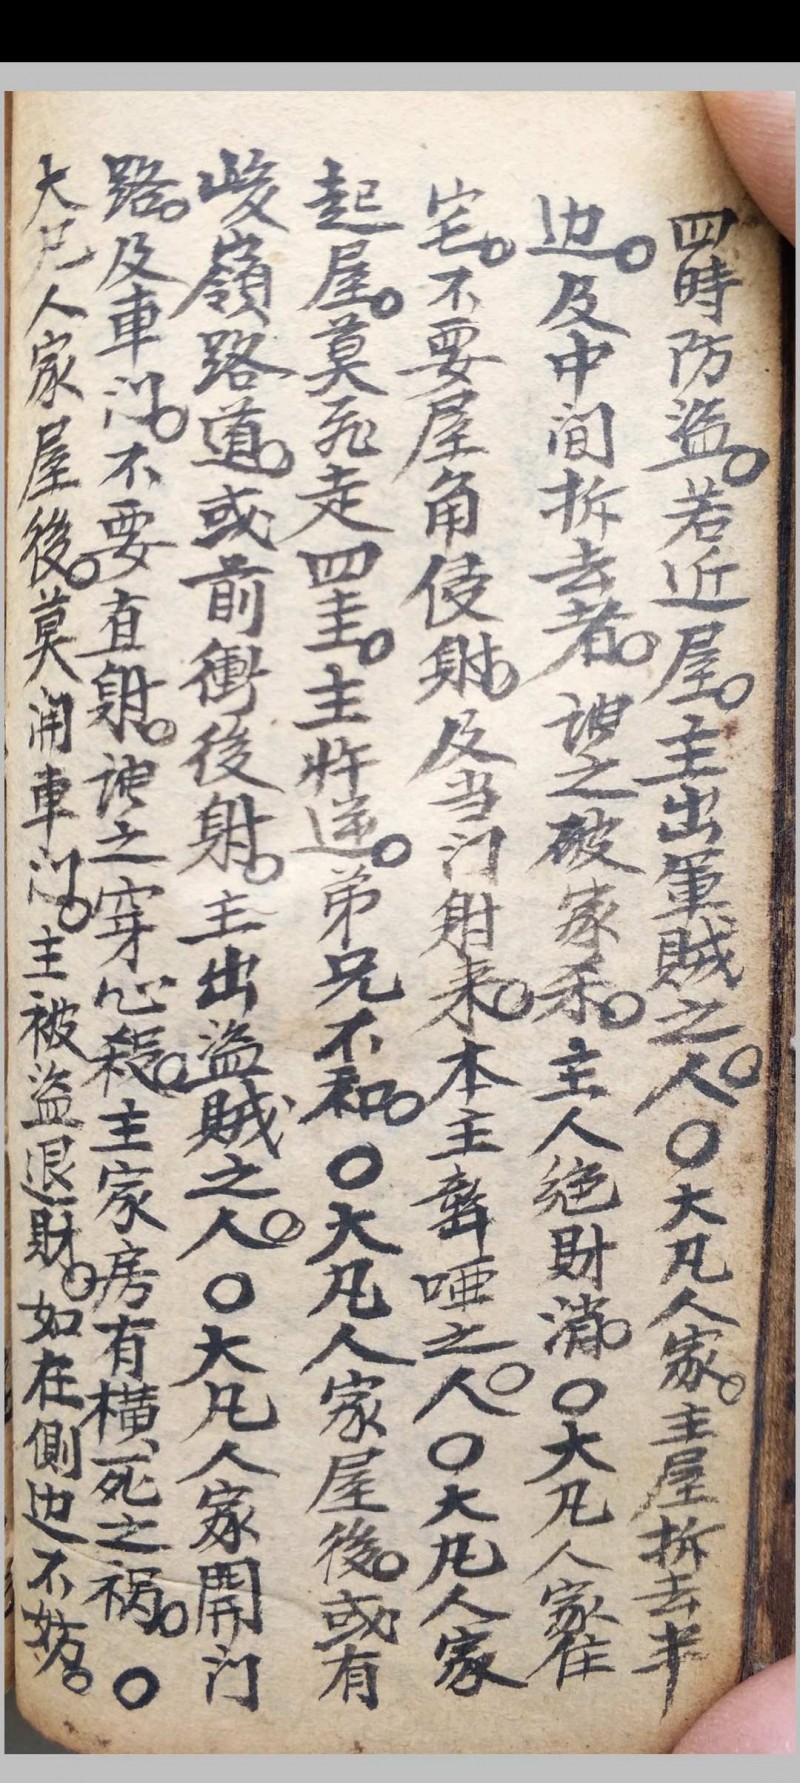 四時防盜。若近屋。主出軍賊之人。〇大凡人家。主屋拆去半
边。及中间拆去者。谓之破家杀。主人绝財消。〇大凡人家住
宅。不要屋角侵射。及当门射来。本主聾哑之人。〇大凡人家
起屋。莫死走四圭。主忤逆。弟兄不和。〇大凡人家屋後。或有
峻嶺路道。或前衝後射。主出盜賊之人。〇大凡人家開门
路。及車门。不要直射。谓之穿心殺。主家房有橫死之祸。〇
大凡人家屋後。莫開車门。主被盜退財。如在側边不妨。